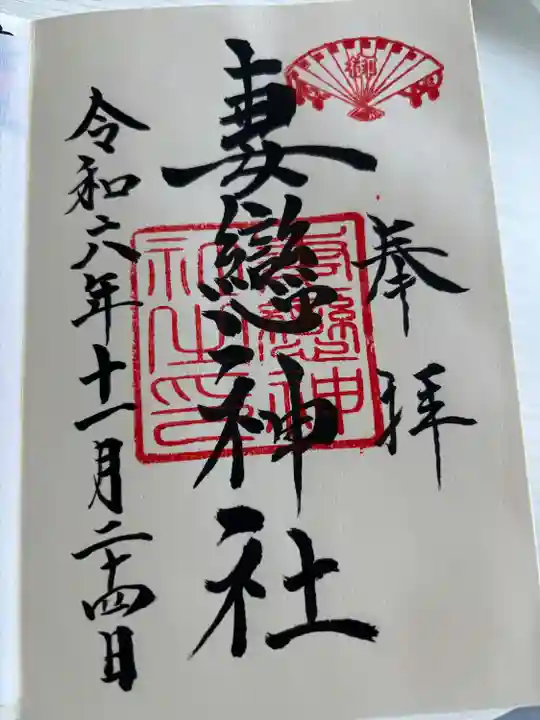 奉拝
妻戀神社
令和六年十一月二十四日
御